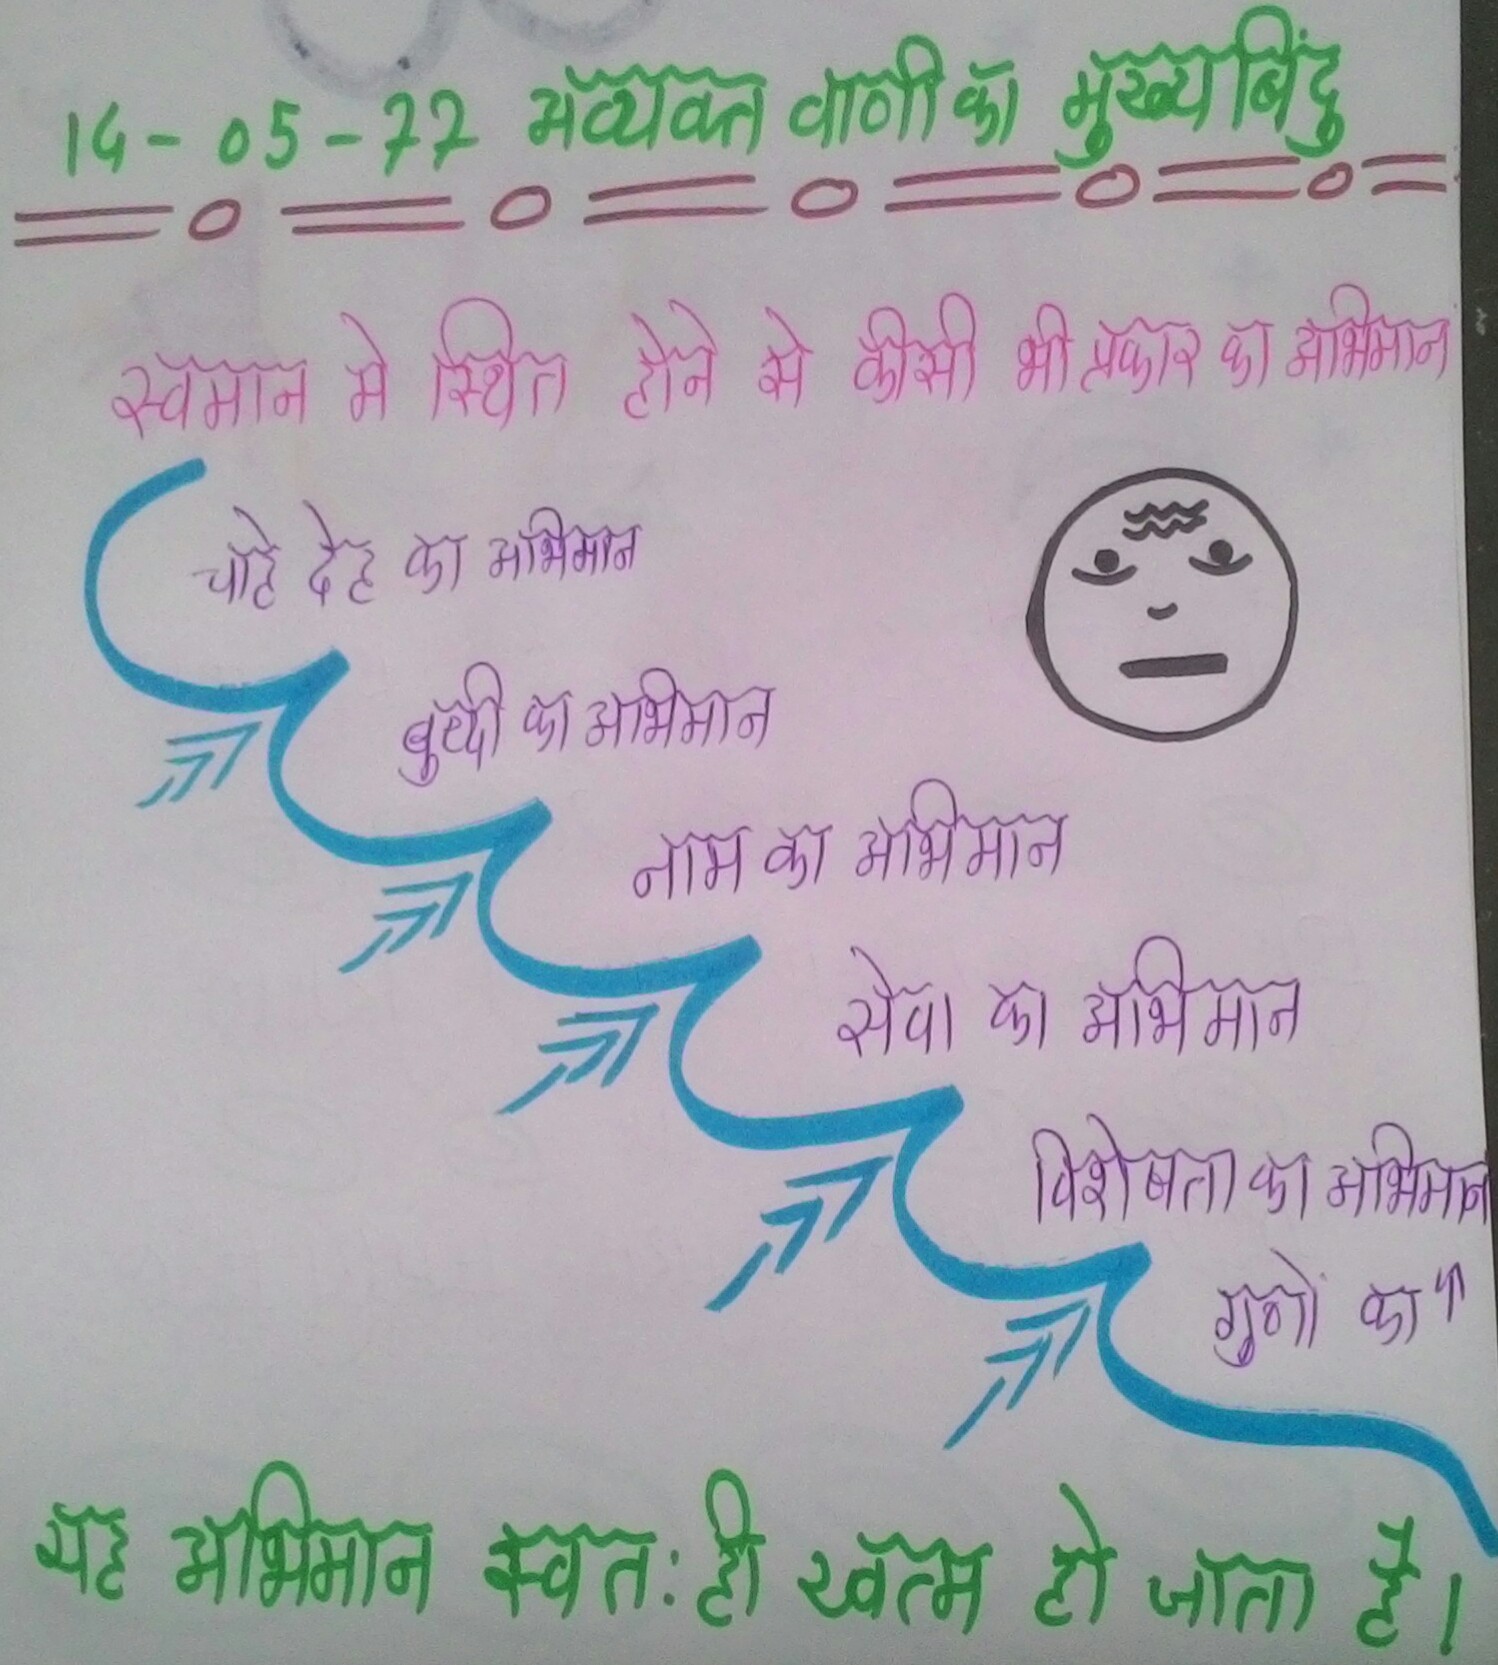 14-05-77 अव्यक्त वाणी का मुख्य बिंदु
स्वमान मे स्थित होने से कीसी भी प्रकार का अभिमान
चाहे देह का अभिमान
बुध्दी का अभिमान
नाम का अभिमान
सेवा का अभिमान
विशेषता का अभिमान
गुणों का "
यह अभिमान स्वत: ही खत्म हो जाता है।